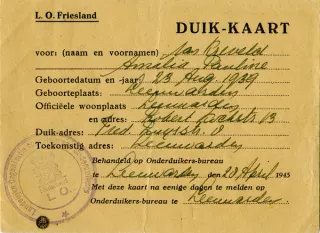 L. O. Friesland
DUIK-KAART
voor: (naam en voornamen)
Amalia Pauline
Geboortedatum en -jaar 23 Aug. 1939
Geboorteplaats: Leeuwarden
Officiële woonplaats Leeuwarden
en adres: Robert Kochstr 13
Duik-adres: Fred.
Toekomstig adres: Leeuwarden
Behandeld op Onderduikers-bureau
te Leeuwarden den 20 April 1945
Met deze kaart na eenige dagen te melden op
Onderduikers-bureau te Leeuwarden
L. O.